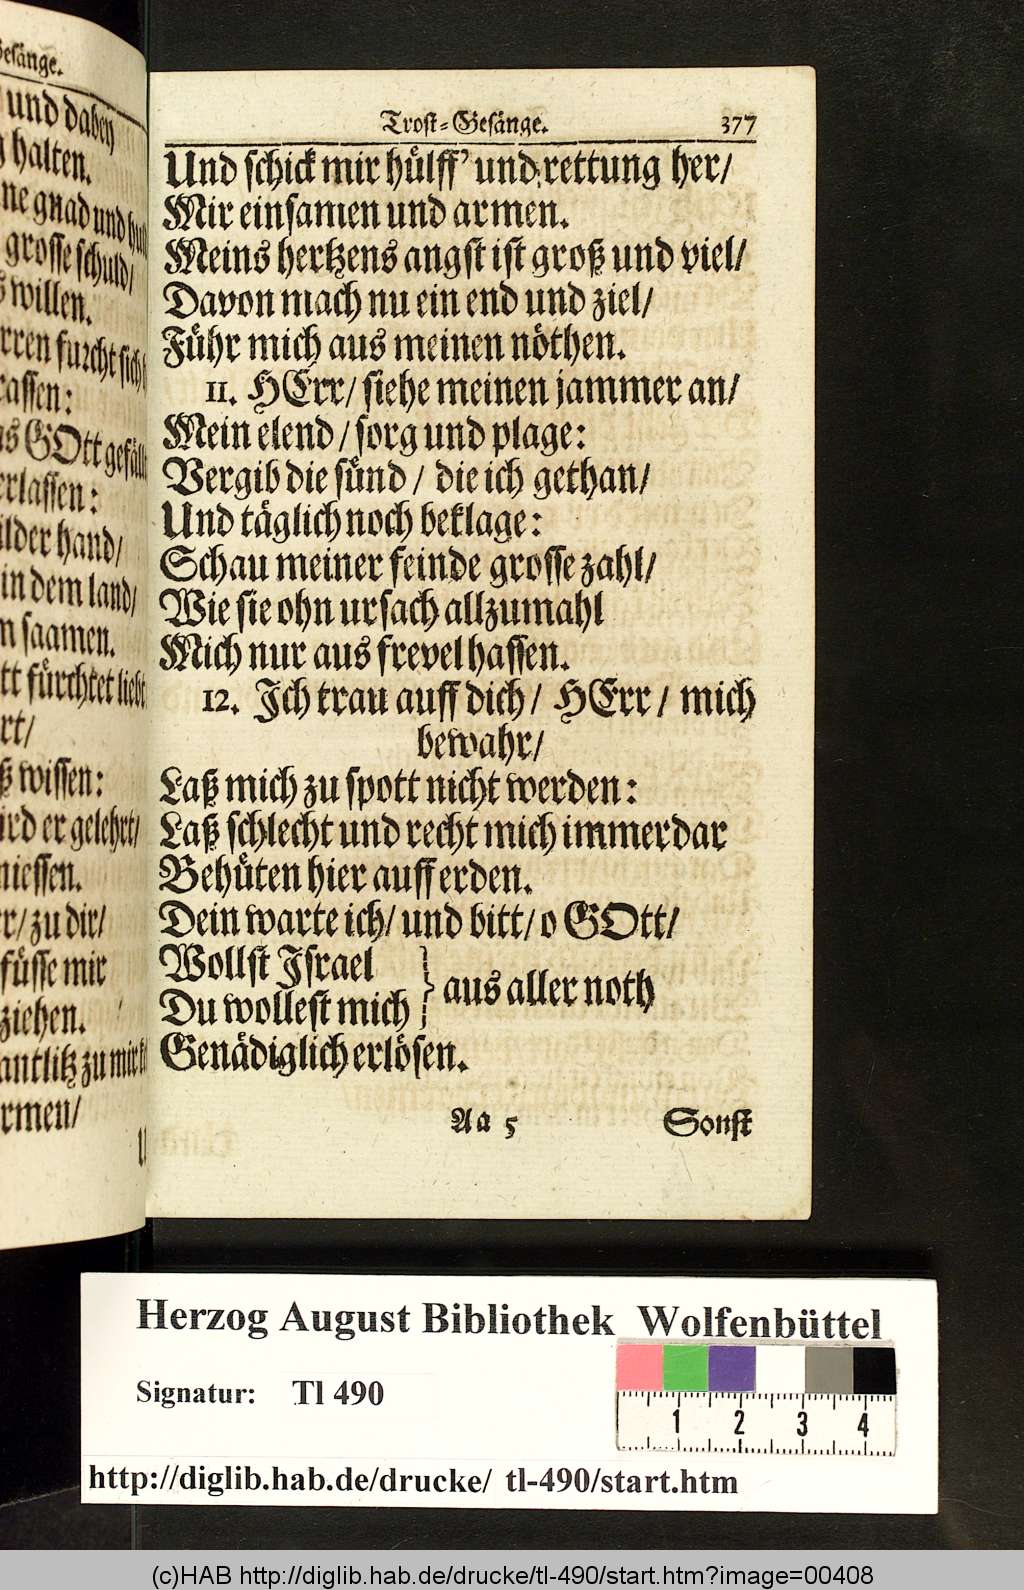 Gesänge.
und dabey
halten.
ne gnad und
grosse schuld/
willen.
rren furcht sich
assen:
GOtt gefäll
erlassen:
ilder hand/
in dem land/
n saamen.
tt fürchtet liebt
rt/
ß wissen:
ird er gelehrt/
niessen.
r/ zu dir/
füsse mir
ziehen.
antlitz zu mir
rmen/
Trost-Gesänge. 377
Und schick mir hülff' und rettung her/
Mir einsamen und armen.
Meins hertzens angst ist groß und viel/
Davon mach nu ein end und ziel/
Führ mich aus meinen nöthen.
11. HErr/ siehe meinen jammer an/
Mein elend/ sorg und plage:
Vergib die sünd/ die ich gethan/
Und täglich noch beklage:
Schau meiner feinde grosse zahl/
Wie sie ohn ursach allzumahl
Mich nur aus frevel hassen.
12. Ich trau auff dich/ HErr/ mich
bewahr/
Laß mich zu spott nicht werden:
Laß schlecht und recht mich immerdar
Behüten hier auff erden.
Dein warte ich/ und bitt/ o GOtt/
Wollst Israel
Du wollest mich } aus aller noth
Genädiglich erlösen.
Aa 5 Sonst
Herzog August Bibliothek Wolfenbüttel
Signatur: Tl 490
1 2 3 4
http://diglib.hab.de/drucke/ tl-490/start.htm
(c)HAB http://diglib.hab.de/drucke/tl-490/start.htm?image=00408